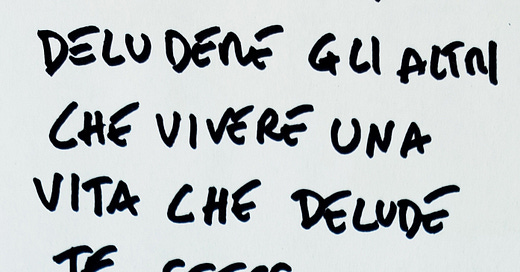 DELUDERE GLI ALTRI
CHE VIVERE UNA
VITA CHE DELUDE
TE